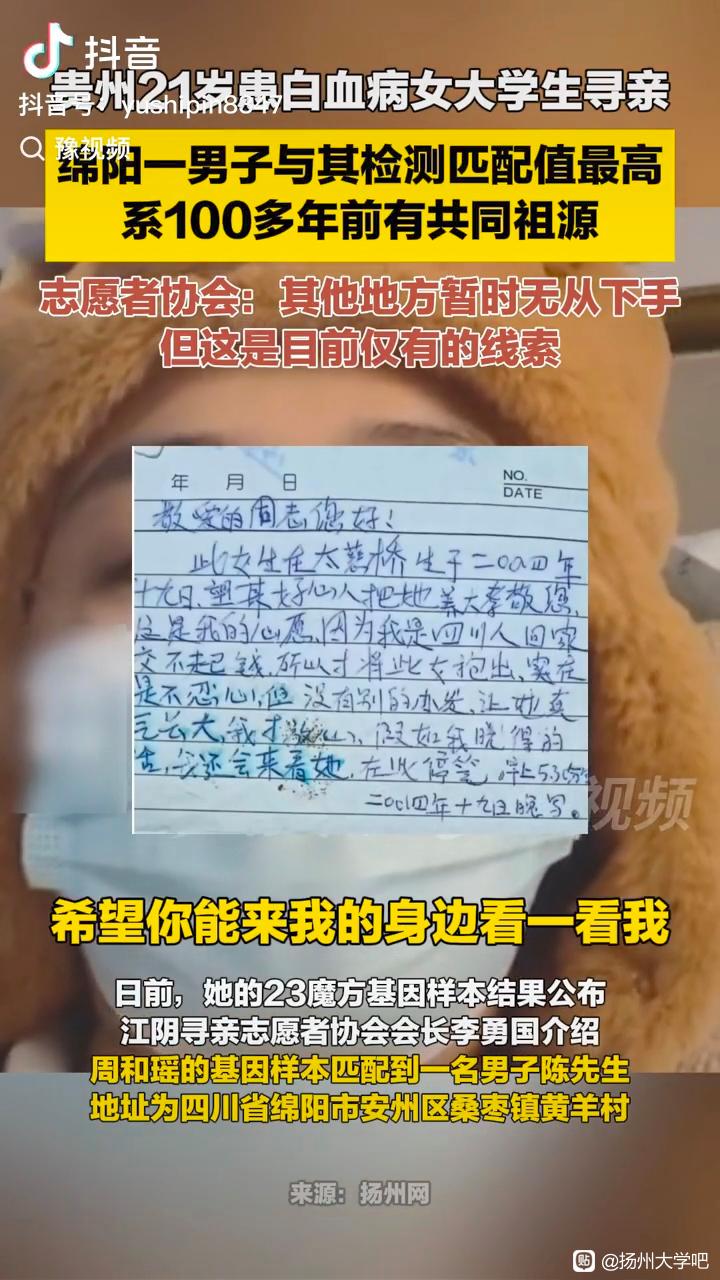 抖音
贵州21岁患白血病女大学生寻亲
抖音号：yushipin8847
豫视频
绵阳一男子与其检测匹配值最高
系100多年前有共同祖源
志愿者协会：其他地方暂时无从下手
但这是目前仅有的线索
年 月 日
NO.
DATE
敬爱的同志您好！
此女生在太慈桥生于二00四年
十九日、望某好心人把她养大孝敬您，
这是我的心愿，因为我是四川人回家
交不起钱，所以才将此女抱出，实在
是不忍心，但没有别的办发，让她
长大，我才放心，假如我晓得的
话，我还会来看她，在此停笔，
二00四年十九日晚写。
视频
希望你能来我的身边看一看我
日前，她的23魔方基因样本结果公布
江阴寻亲志愿者协会会长李勇国介绍
周和瑶的基因样本匹配到一名男子陈先生
地址为四川省绵阳市安州区桑枣镇黄羊村
来源：扬州网
贴 @扬州大学吧